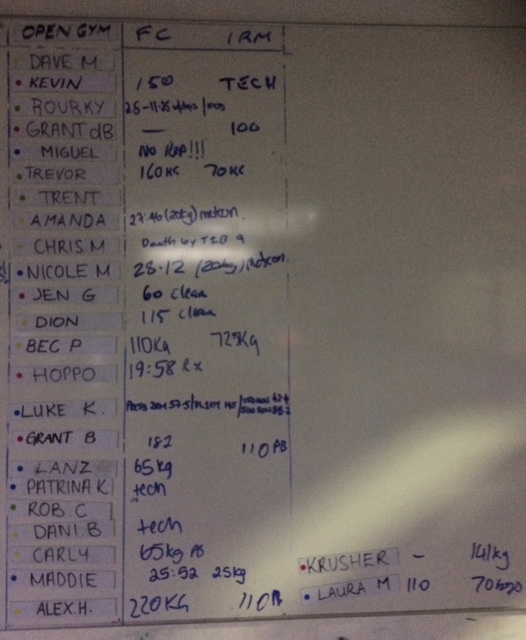 OPEN GYM FC 1RM
DAVE M
KEVIN 150 TECH
BOURKY
GRANT dB — 100
MIGUEL NO Rep!!!
TREVOR 160KG 70KG
TRENT
AMANDA 27.46 (20kg) metcon
CHRIS M Death by T2B 9
NICOLE M 28.12 (20kg) metcon
JEN G 60 clean
DION 115 clean
BEC P 110Kg 72.5Kg
HOPPO 19:58 Rx
LUKE K.
GRANT B 182 110 PB
LANZ 65kg
PATRINA K. tech
ROB C
DANI B tech
CARLY 65kg PB
MADDIE 25:52 25kg
ALEX.H. 220KG 110
KRUSHER – 141kg
LAURA M 110 70